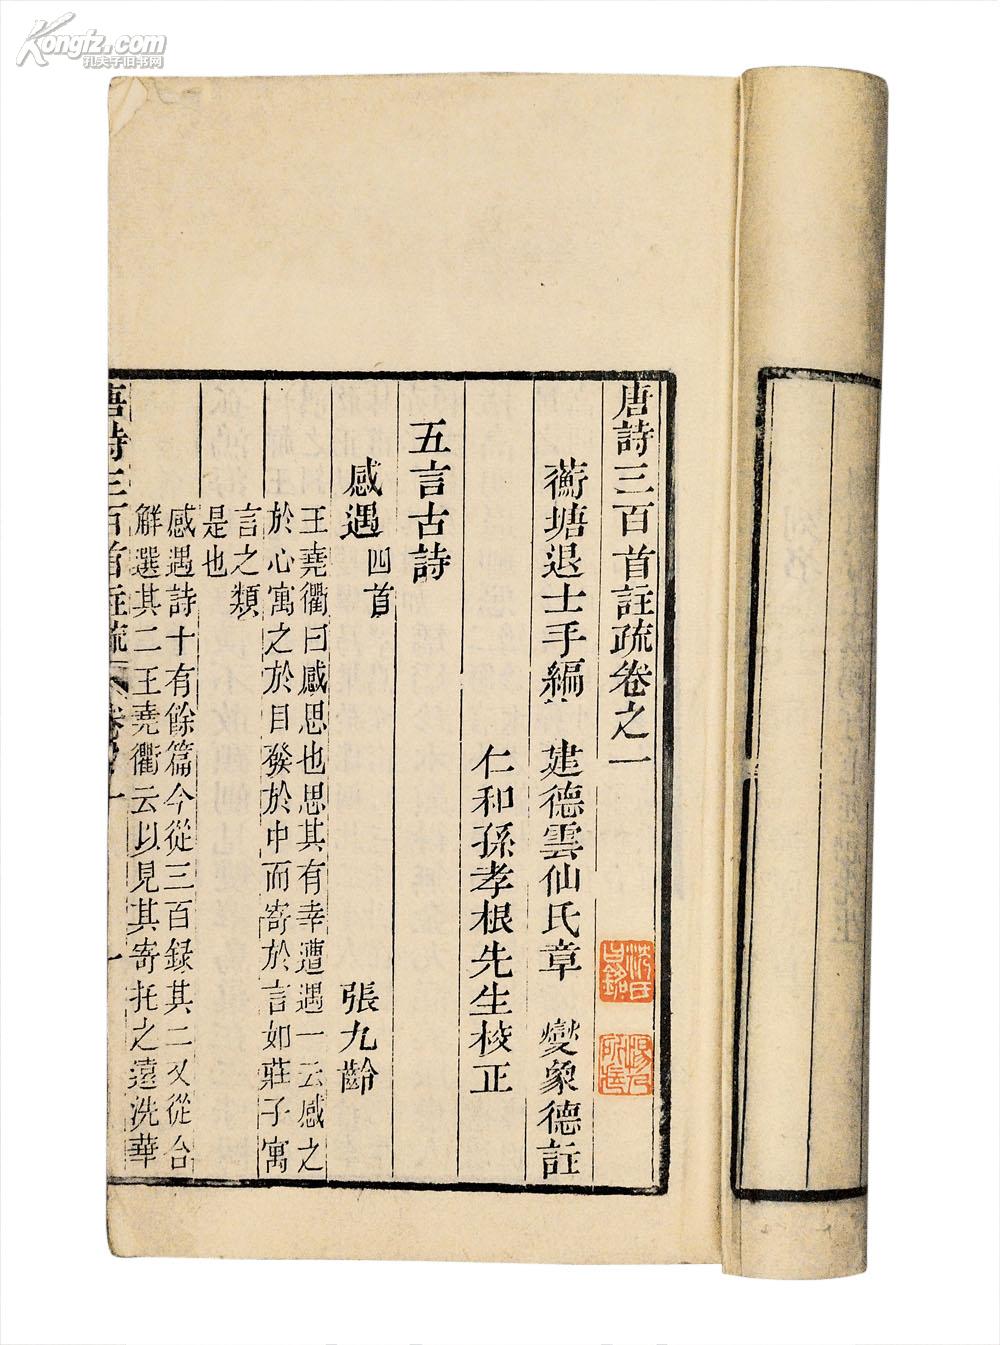 Kongfz.com
孔夫子旧书网
唐詩三百首註疏卷之一
蘅塘退士手編 建德雲仙氏章 燮象德註
仁和孫孝根先生校正
五言古詩
感遇四首 張九齡
王堯衢曰感思也思其有幸遭遇一云感之
於心寓之於目發於中而寄於言如莊子寓
言之類
是也
感遇詩十有餘篇今從三百錄其二又從台
解選其二王堯衢云以見其寄托之遠洗華
唐詩三百首註疏 卷之一 一